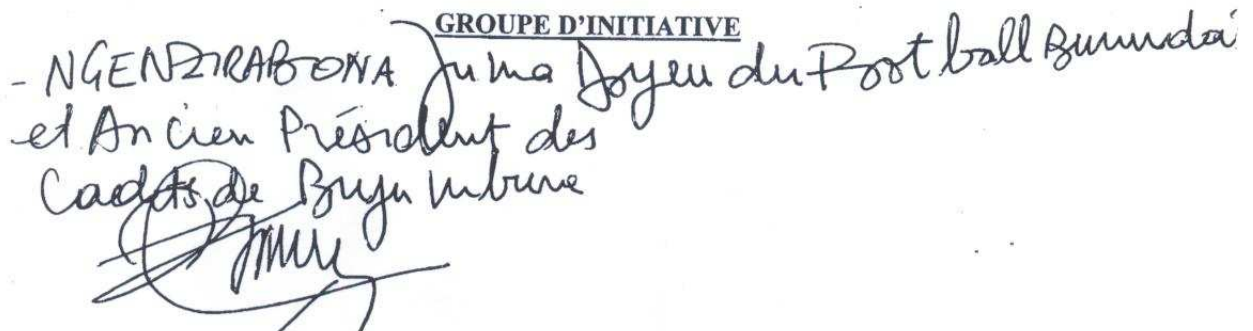 GROUPE D'INITIATIVE
- NGENZIRABONA Juma Doyen du Football Burundai
et Ancien Président des
Cadets de Bujumbura